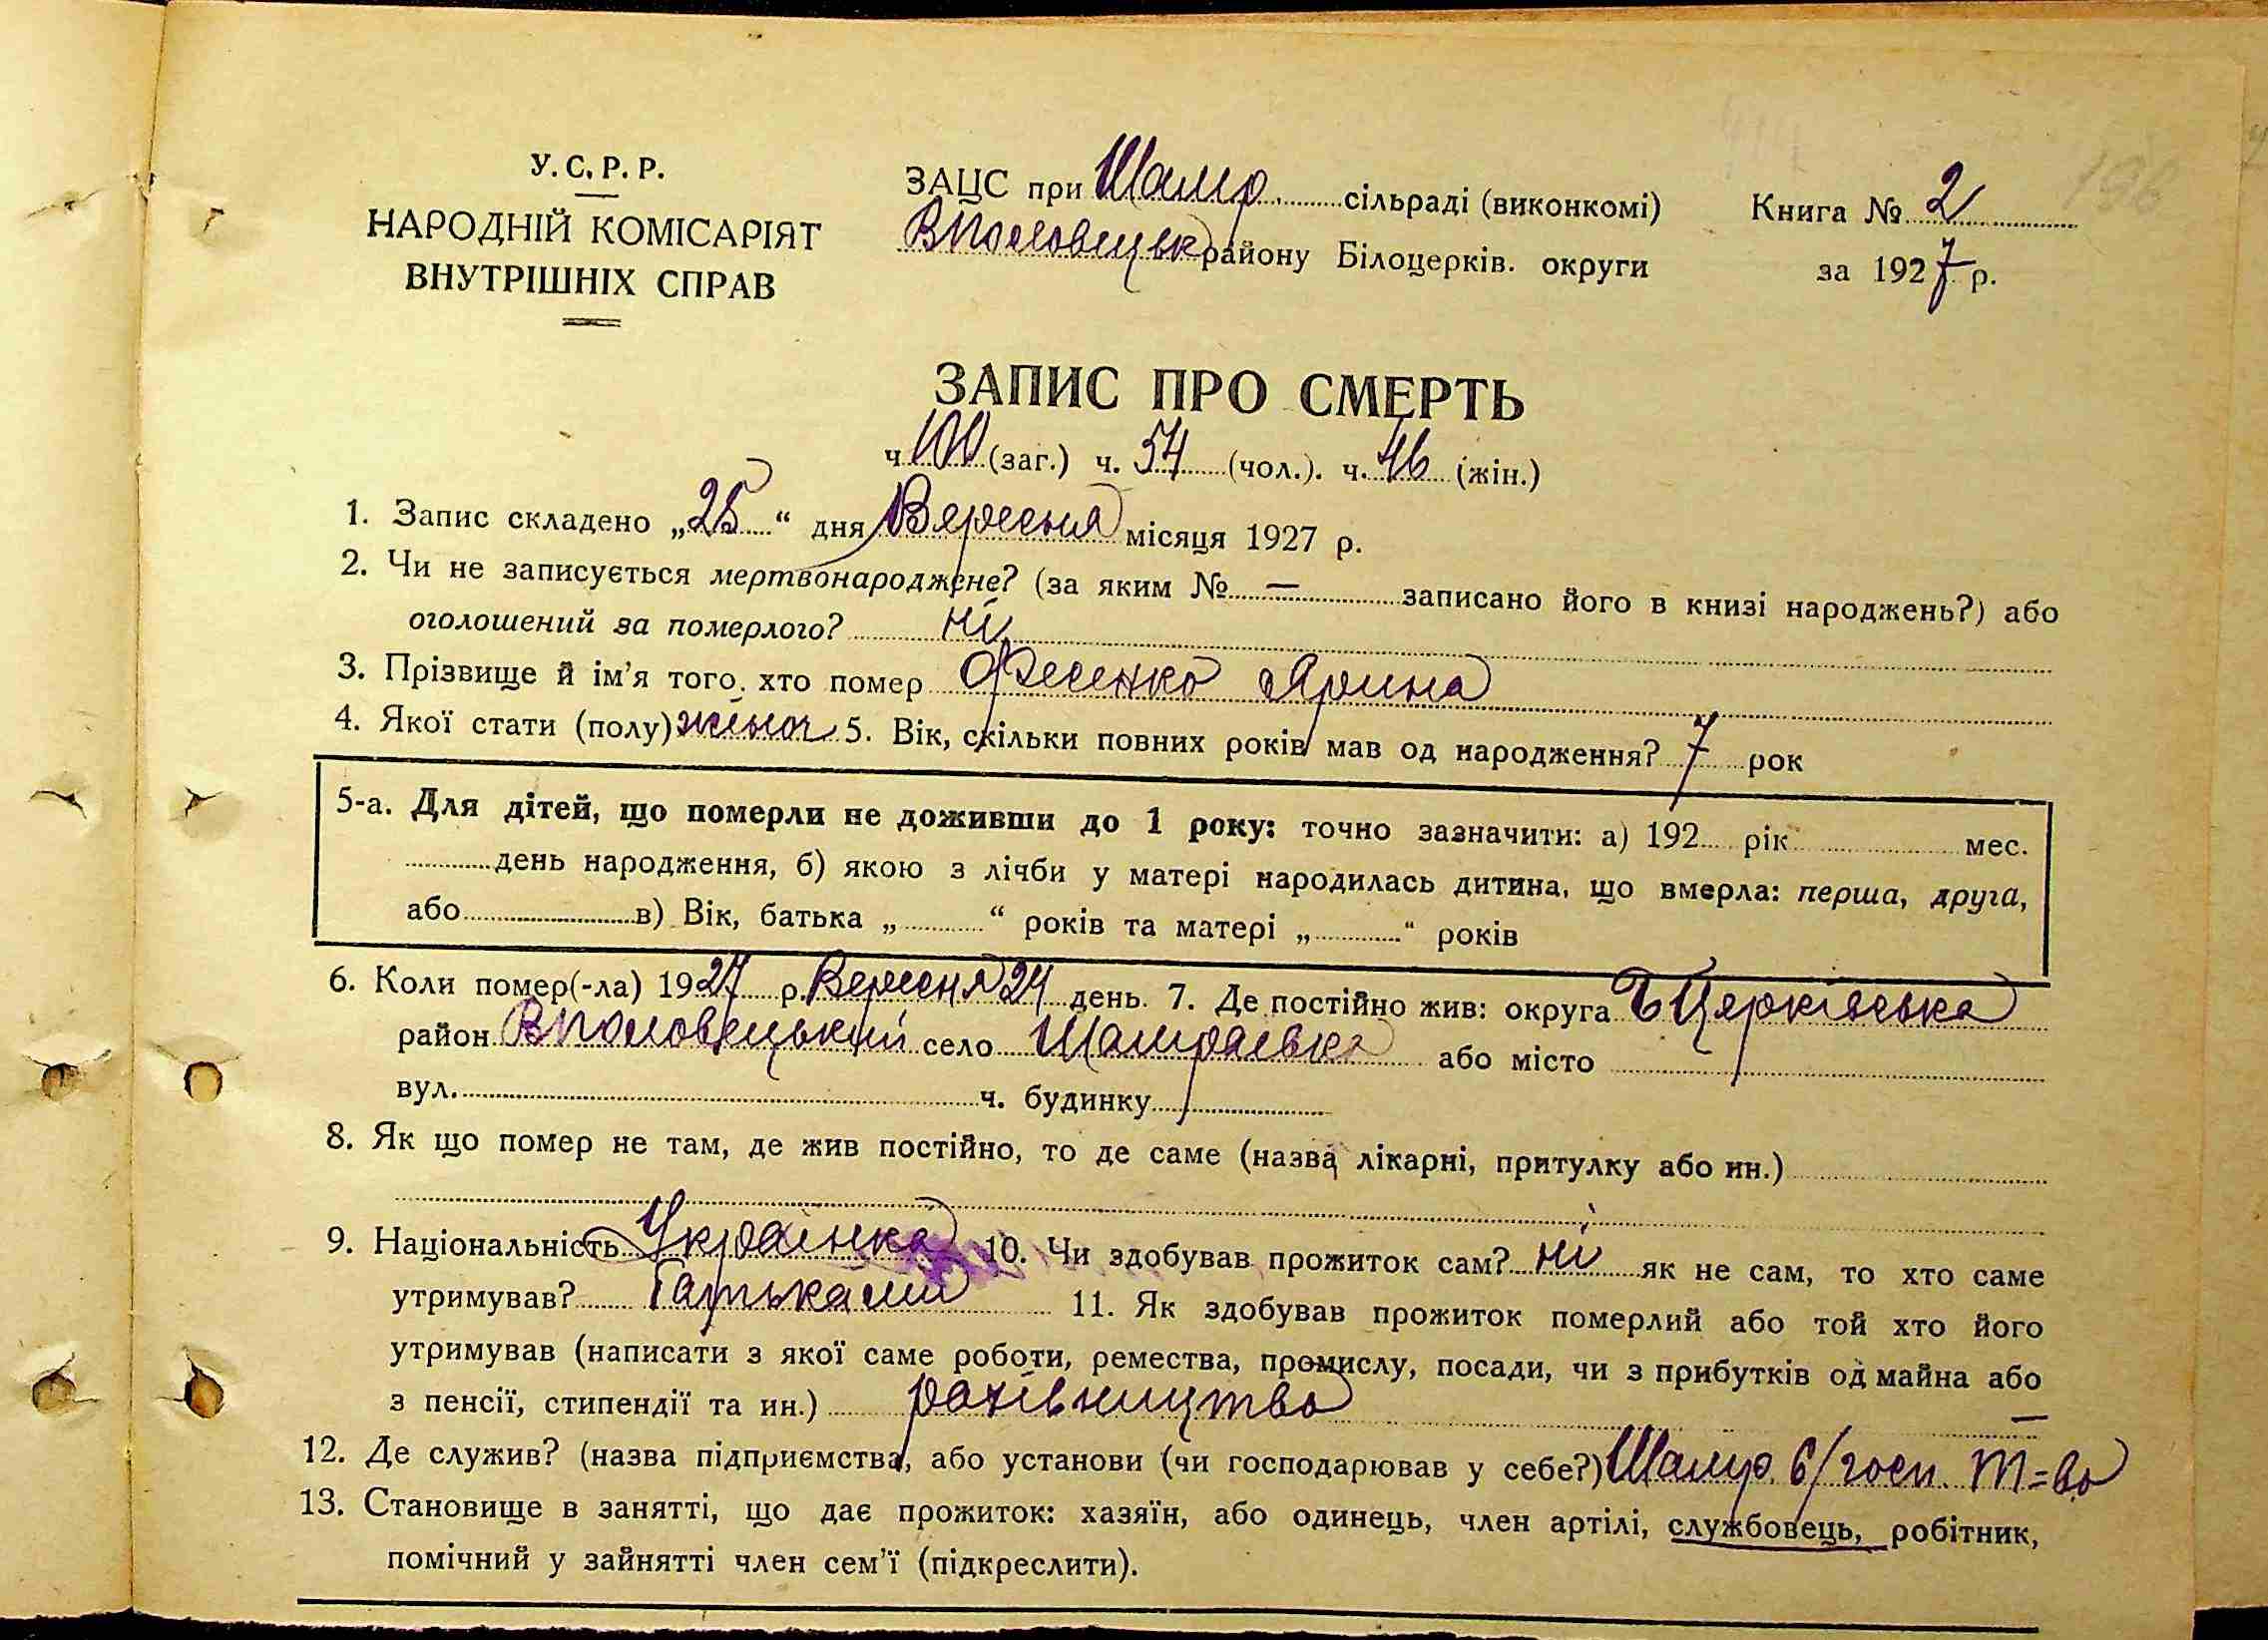 У.С.Р.Р.
НАРОДНІЙ КОМІСАРІЯТ
ВНУТРІШНІХ СПРАВ
ЗАЦС при Шамр. сільраді (виконкомі)
ВПоловецьк району Білоцерків. округи
Книга № 2
за 1927 р.
196
ЗАПИС ПРО СМЕРТЬ
ч. 100 (заг.) ч. 54 (чол.). ч. 46 (жін.)
1. Запис складено „25“ дня Вересня місяця 1927 р.
2. Чи не записується мертвонароджене? (за яким № — записано його в книзі народжень?) або
оголошений за померлого? ні
3. Прізвище й ім’я того, хто помер Фесенко Ярина
4. Якої стати (полу) жіноч 5. Вік, скільки повних років мав од народження? 7 рок
5-а. Для дітей, що померли не доживши до 1 року: точно зазначити: а) 192 рік мес.
день народження, б) якою з лічби у матері народилась дитина, що вмерла: перша, друга,
або в) Вік, батька „ “ років та матері „ “ років
6. Коли помер(-ла) 1927 р. Вересня 24 день. 7. Де постійно жив: округа БЦерківська
район ВПоловецький село Шамраївка або місто
вул. ч. будинку
8. Як що помер не там, де жив постійно, то де саме (назва лікарні, притулку або ин.)
9. Національність Українка 10. Чи здобував прожиток сам? ні як не сам, то хто саме
утримував? Батьками 11. Як здобував прожиток померлий або той хто його
утримував (написати з якої саме роботи, ремества, промислу, посади, чи з прибутків од майна або
з пенсії, стипендії та ин.) рахівництво
12. Де служив? (назва підприємства, або установи (чи господарював у себе?) Шамр. С/госп. Т=во
13. Становище в занятті, що дає прожиток: хазяїн, або одинець, член артілі, службовець, робітник,
помічний у зайнятті член сем’ї (підкреслити).